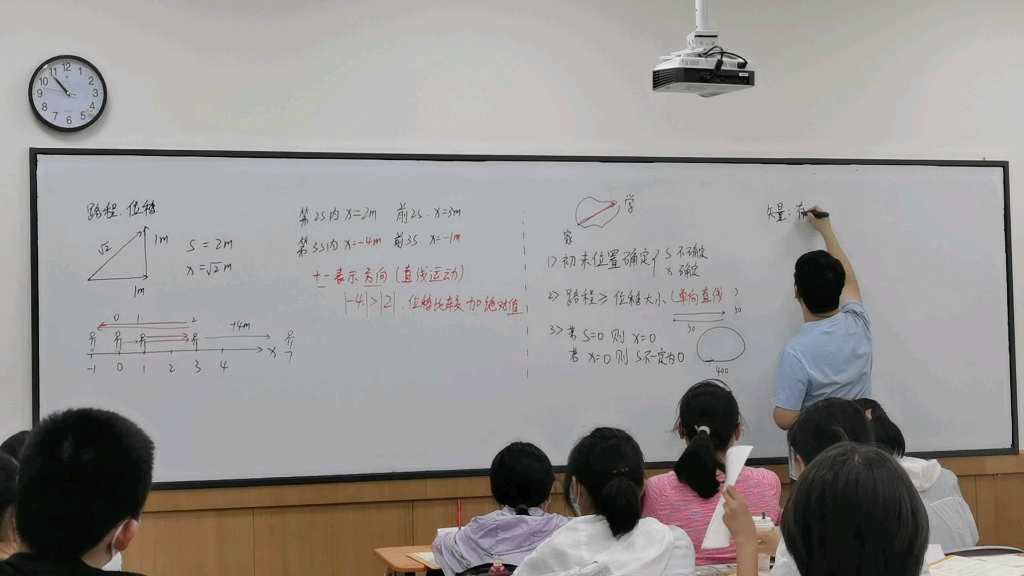 路程、位移
√2
1m
1m
S = 2m
x = √2 m
0 1 2
+4m
-1 0 1 2 3 4 x 7
第2S内 x=2m 前2S. x=3m
第3S内 x=-4m 前3S. x=-1m
+ - 表示方向(直线运动)
|-4|>|2| 位移比较加绝对值
学
家
1) 初末位置确定{ S不确定
x确定
2) 路程≥位移大小(单向直线)
50 50
3) 若 S=0 则 x=0
若 x=0 则 S不一定为0
400
矢量: 有
12 1 2 3 4 5 6 7 8 9 10 11